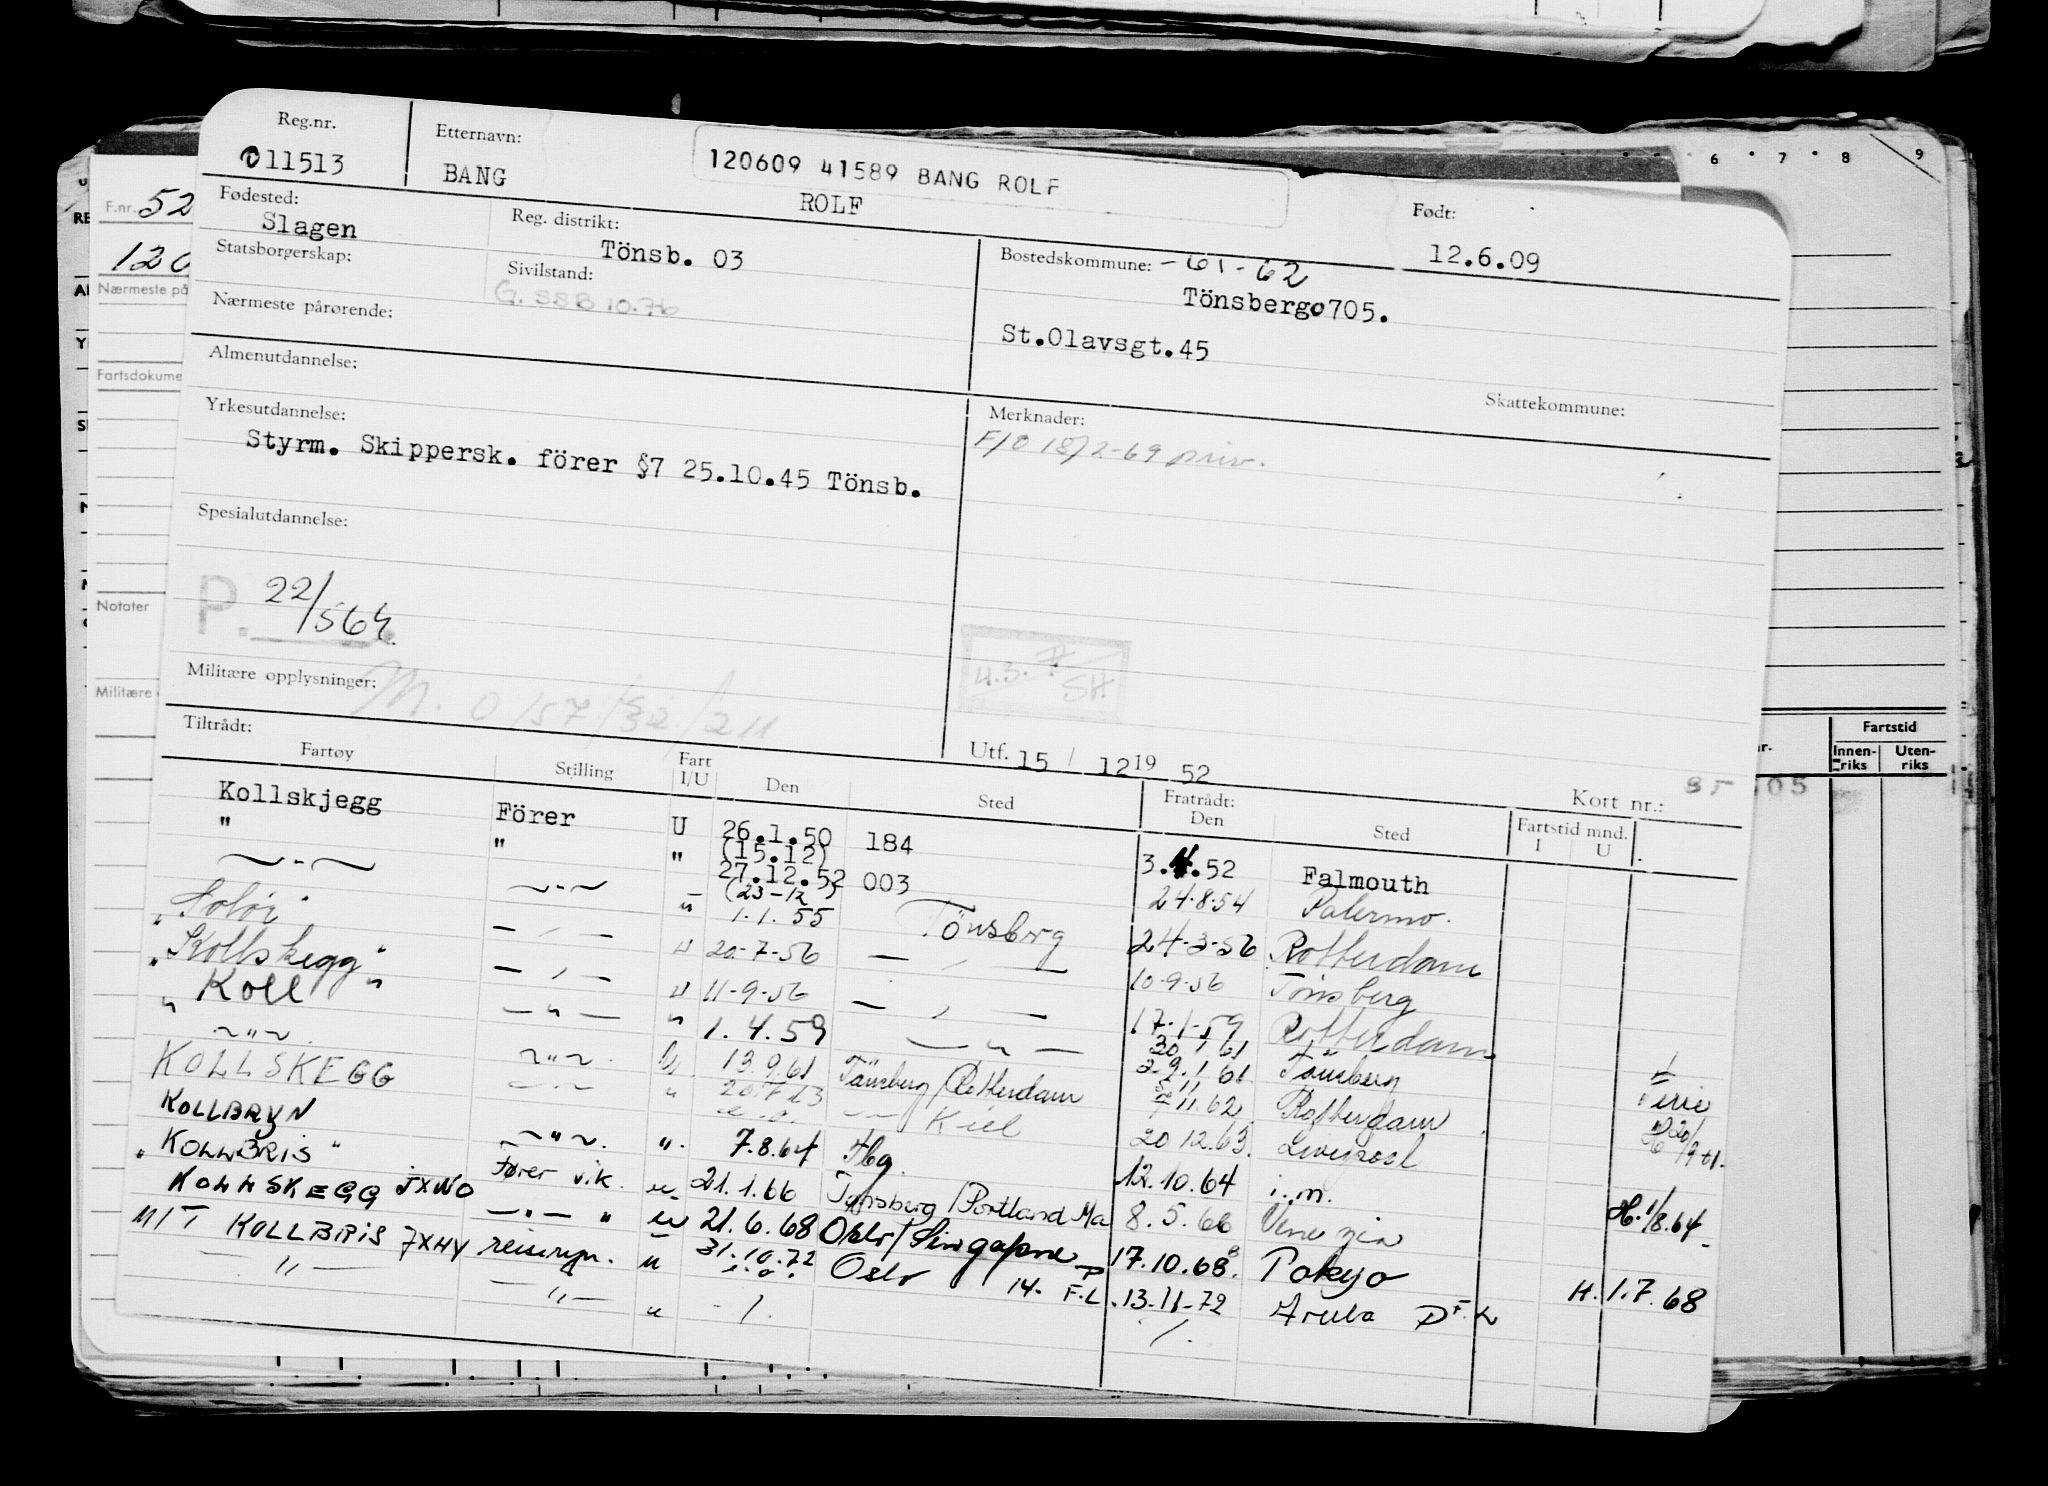 Reg.nr.
011513
Etternavn:
BANG
120609 41589 BANG ROLF
ROLF
Født:
12.6.09
Fødested:
Slagen
Reg. distrikt:
Tönsb. 03
Statsborgerskap:
Sivilstand:
G. SSB 10.76
Bostedskommune: -61-62
Tönsberg 0705.
St.Olavsgt.45
Nærmeste pårørende:
Skattekommune:
Almenutdannelse:
Yrkesutdannelse:
Styrm. Skippersk. förer §7 25.10.45 Tönsb.
Merknader:
F/O 18/2-69 priv.
Spesialutdannelse:
P. 22/564
4.3.
SH
Militære opplysninger:
M. 0157/32/211
Utf. 15 / 12 19 52
Kort nr.:
Tiltrådt:
Fartøy Stilling Fart I/U Den Sted Fratrådt: Den Sted Fartstid mnd. I U
Kollskjegg Förer U 26.1.50 184 3.4.52 Falmouth
" " " (15.12) 27.12.52 003 24.8.54 Palermo.
(23-12) 1.1.55 Tönsberg 24-3-56 Rotterdam
"Solör" 20-7-56 10-9-56 Tönsberg
"Kollskegg" 11-9-56 17-1-59 Rotterdam
"Koll" 1.4.59 Tönsberg
KOLLSKEGG 13.9.61 Tönsberg/Rotterdam 7.11.62 Rotterdam
KOLLBRYN Kiel 20.12.63. Liverpool
"KOLLBRIS" 7.8.64 Hbg. 12.10.64 i.m. H. 1/8.64
KOLLSKEGG JXWO Fører vik. 21.1.66 Tønsberg/Portland Ma 8.5.66 Venezia
M/T KOLLBRIS JXHY 21.6.68 Oslo/Singapore 17.10.68. Tokyo H. 1.7.68
reiserep. 31.10.72 Oslo 14. F.L. 13-11-72 Aruba
F.nr. 52
120
Nærmeste på
Fartsdokume
Notater
Militære
6 7 8 9
Fartstid
Innen-riks
Uten-riks